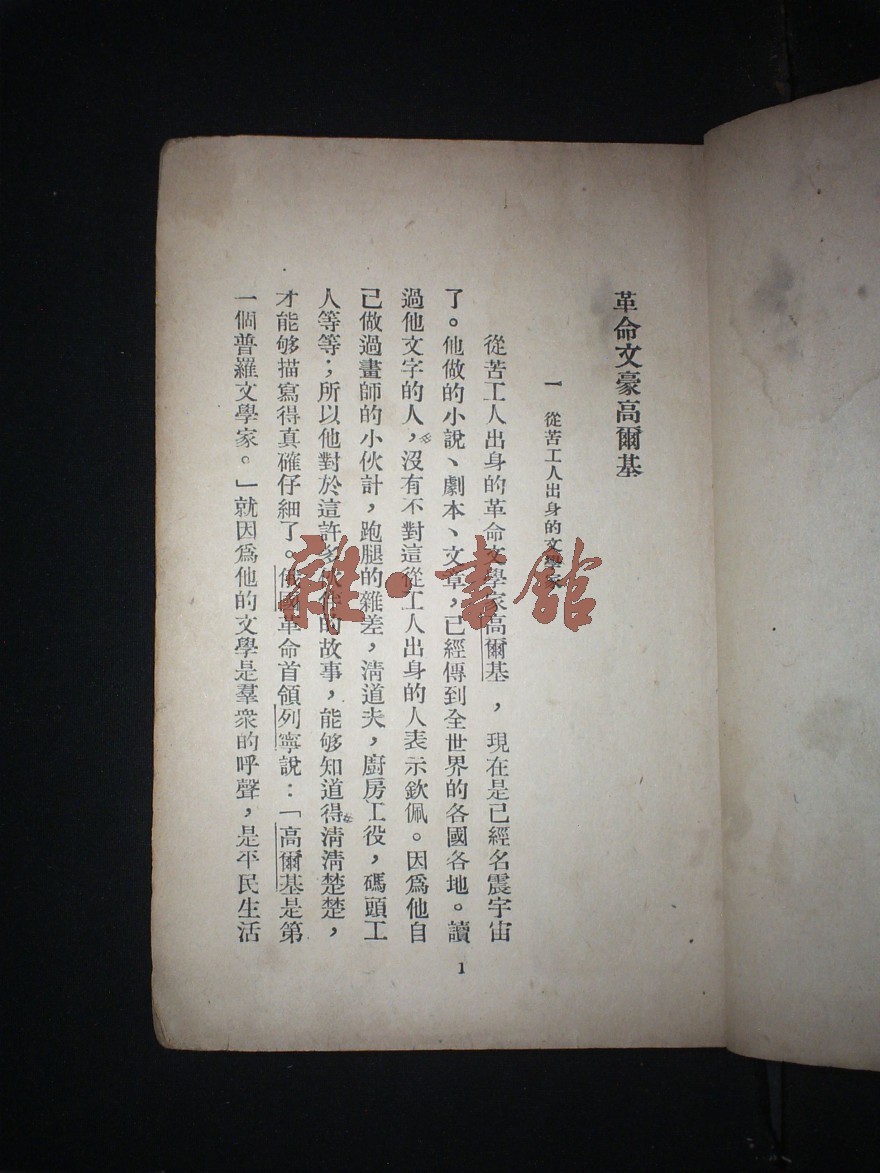 革命文豪高爾基
一 從苦工人出身的文學家
從苦工人出身的革命文學家高爾基，現在是已經名震宇宙
了。他做的小說、劇本、文章，已經傳到全世界的各國各地。讀
過他文字的人，沒有不對這從工人出身的人表示欽佩。因爲他自
己做過畫師的小伙計，跑腿的雜差，淸道夫，廚房工役，碼頭工
人等等；所以他對於這許多 的故事，能够知道得淸淸楚楚，
才能够描寫得真確仔細了。俄國革命首領列寧說：「高爾基是第
一個普羅文學家。」就因爲他的文學是羣衆的呼聲，是平民生活
1
雜·書館